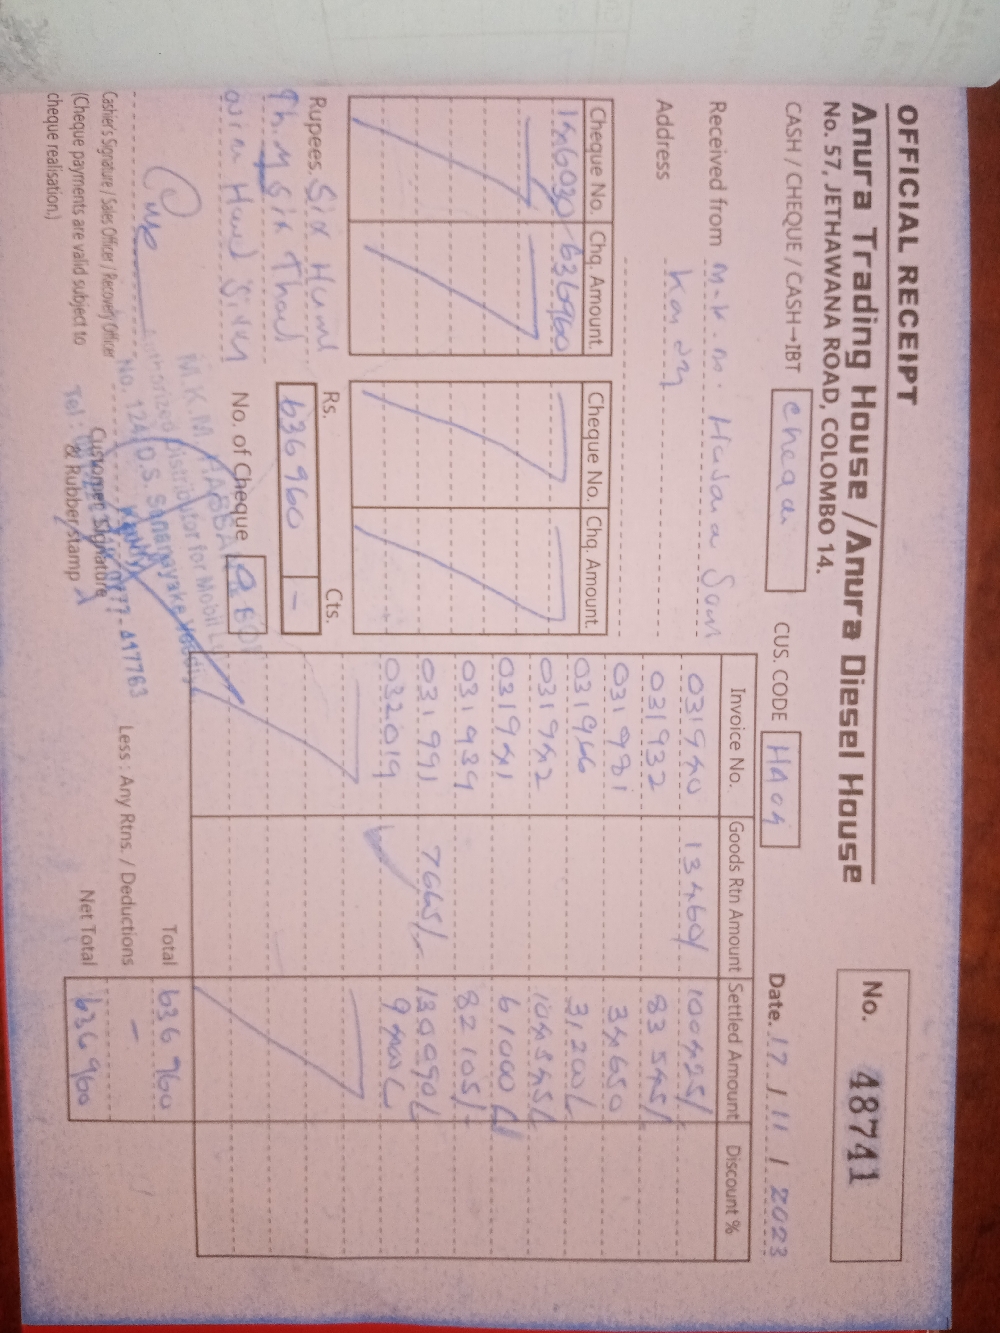 OFFICIAL RECEIPT
Anura Trading House / Anura Diesel House
No. 57, JETHAWANA ROAD, COLOMBO 14.
No. 48741
CASH / CHEQUE / CASH→IBT
CUS. CODE HA04
Date. 17 / 11 / 2023
Received from M.K.M. Hasana Son
Address Kandy
Cheque No. Chq. Amount. Cheque No. Chq. Amount.
636960
Rs. Cts.
Rupees. Six Hund
Thirty Six Thad
Nine Hund Sixty
636960 -
No. of Cheque
Invoice No. Goods Rtn Amount Settled Amount Discount %
031940 13460/ 100425/
031932 83545/
031981 34650
031966 31200/
031942 104545/
031941 61000/
031939 82105/
031991 7665/- 130090/
032019 9400/
Total 636960
Less : Any Rtns. / Deductions -
Net Total 636960
Cashier's Signature / Sales Officer / Recovery Officer
(Cheque payments are valid subject to
cheque realisation.)
Customer Signature
& Rubber stamp
M.K.M.
Distributor for Mobil
No. 124, D.S. Senanayake
Kandy.
Tel :